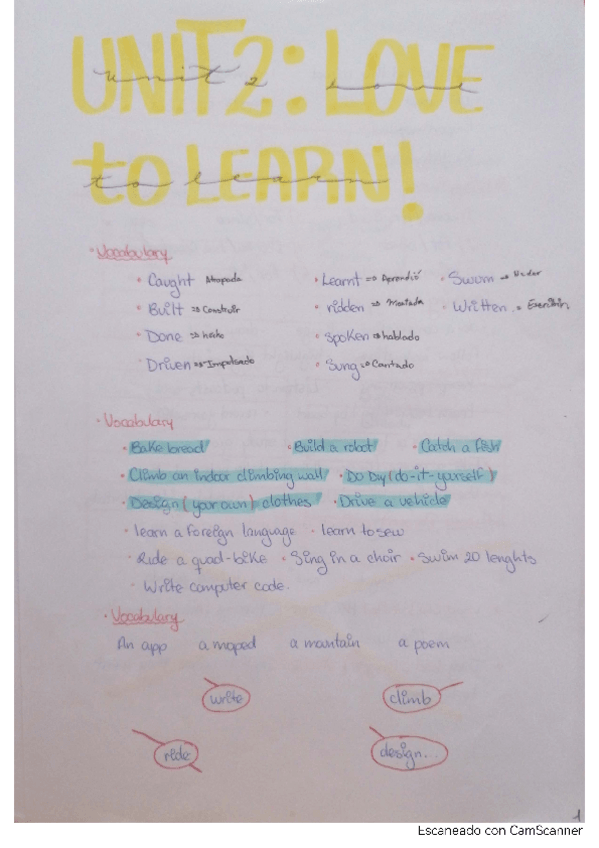 UNIT 2: LOVE
unit 2 love
to LEARN!
to learn
· Vocabulary
· Caught Atrapado · Learnt => Aprendió · Swum => Nadar
· Built => Construir · ridden => Montada · Written => Escribir
· Done => hecho · spoken => hablado
· Driven => Impulsado · Sung => Cantado
· Vocabulary
· Bake bread · Build a robot · Catch a fish
· Climb an indoor climbing wall · Do Diy (do-it-yourself)
· Design (your own) clothes · Drive a vehicle
· learn a foreign language · learn to sew
· Ride a quad-bike · Sing in a choir · Swim 20 lenghts
· Write computer code.
· Vocabulary
An app a moped a mountain a poem
write climb
ride design...
1
Escaneado con CamScanner